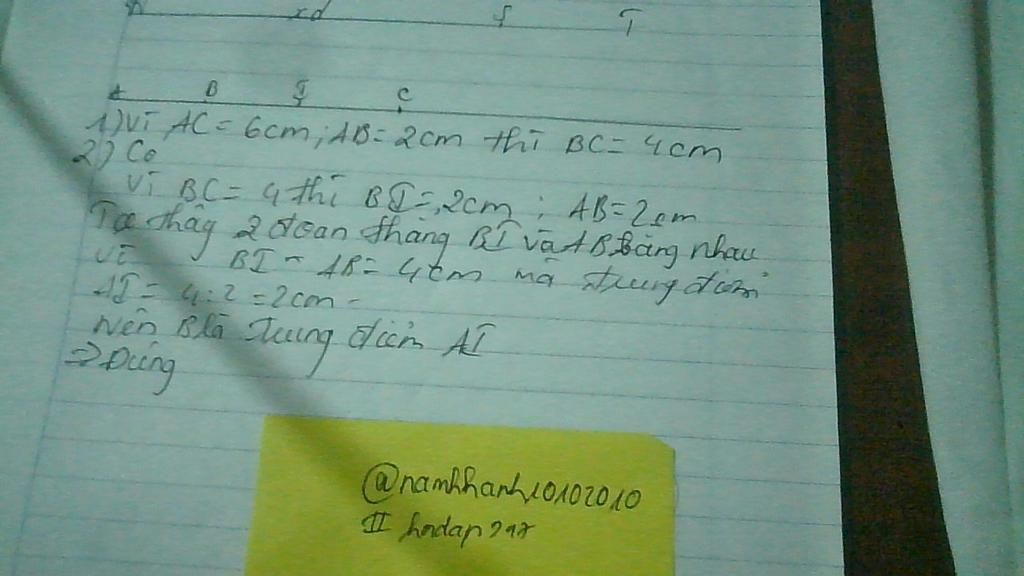 A B I C
1) Vì AC = 6cm; AB = 2cm thì BC = 4cm
2) Co
Vì BC = 4 thì BI = 2cm; AB = 2cm
Ta thấy 2 đoan thẳng BI và AB bằng nhau
Vì BI - AB = 4cm mà trung điểm
AI = 4:2 = 2cm -
Nên B là trung điểm AI
=> Đúng
@namkhanh10102010
II hodap247